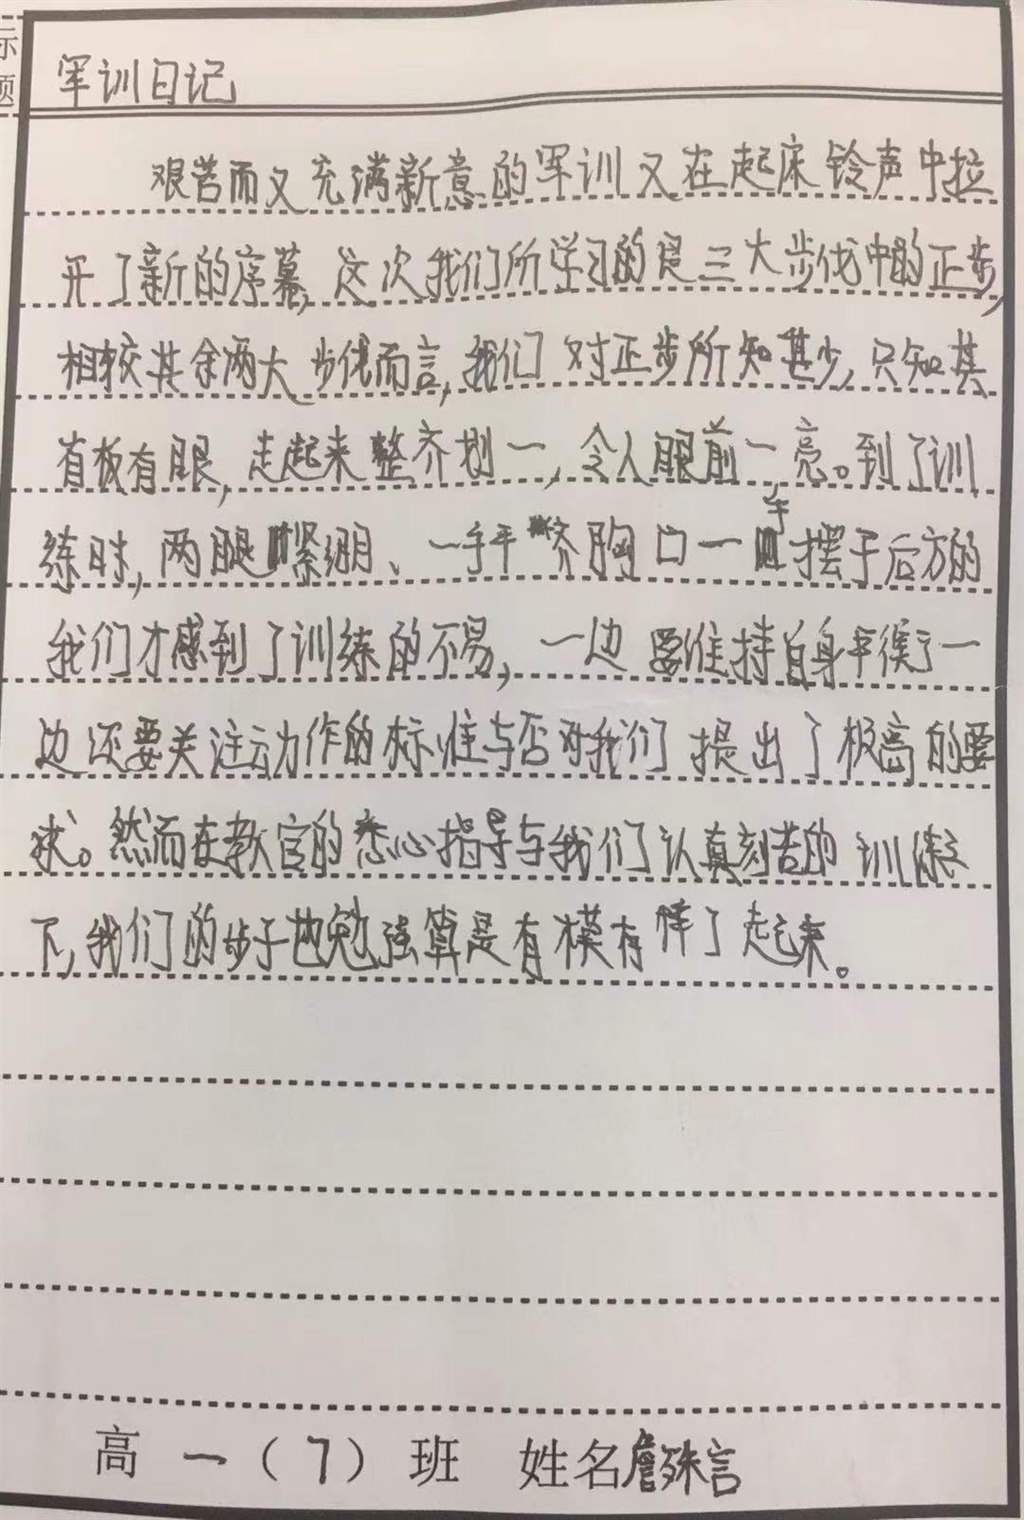 标题
军训日记
艰苦而又充满新意的军训又在起床铃声中拉
开了新的序幕,这次我们所学习的是三大步伐中的正步,
相较其余两大步伐而言,我们对正步所知甚少,只知其
有板有眼,走起来整齐划一,令人眼前一亮。到了训
练时,两腿紧绷、一手平齐胸口一手摆于后方的
我们才感到了训练的不易,一边要住持自身平衡一
边还要关注动作的标准与否对我们提出了极高的要
求。然而在教官的悉心指导与我们认真刻苦的训练之
下,我们的步子也勉强算是有模有样了起来。
高一(7)班 姓名詹殊言